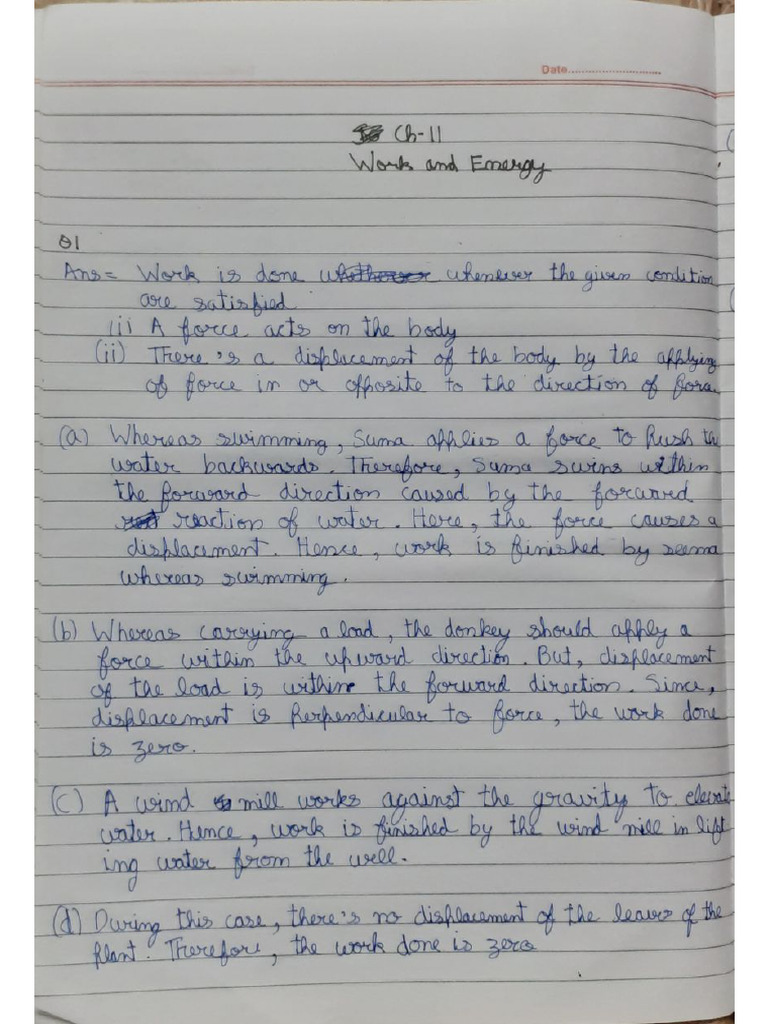 Date
Ch-11
Work and Energy
Q1
Ans= Work is done whenever the given condition
are satisfied
(i) A force acts on the body
(ii) There's a displacement of the body by the applying
of force in or opposite to the direction of force
(a) Whereas swimming, Suma applies a force to Push the
water backwards. Therefore, Suma swins within
the forward direction caused by the forward
reaction of water. Here, the force causes a
displacement. Hence, work is finished by seema
whereas swimming.
(b) Whereas carrying a load, the donkey should apply a
force within the upward direction. But, displacement
of the load is within the forward direction. Since,
displacement is Perpendicular to force, the work done
is zero.
(c) A wind mill works against the gravity to elevate
water. Hence, work is finished by the wind mill in lift
ing water from the well.
(d) During this case, there's no displacement of the leaves of the
Plant. Therefore, the work done is zero